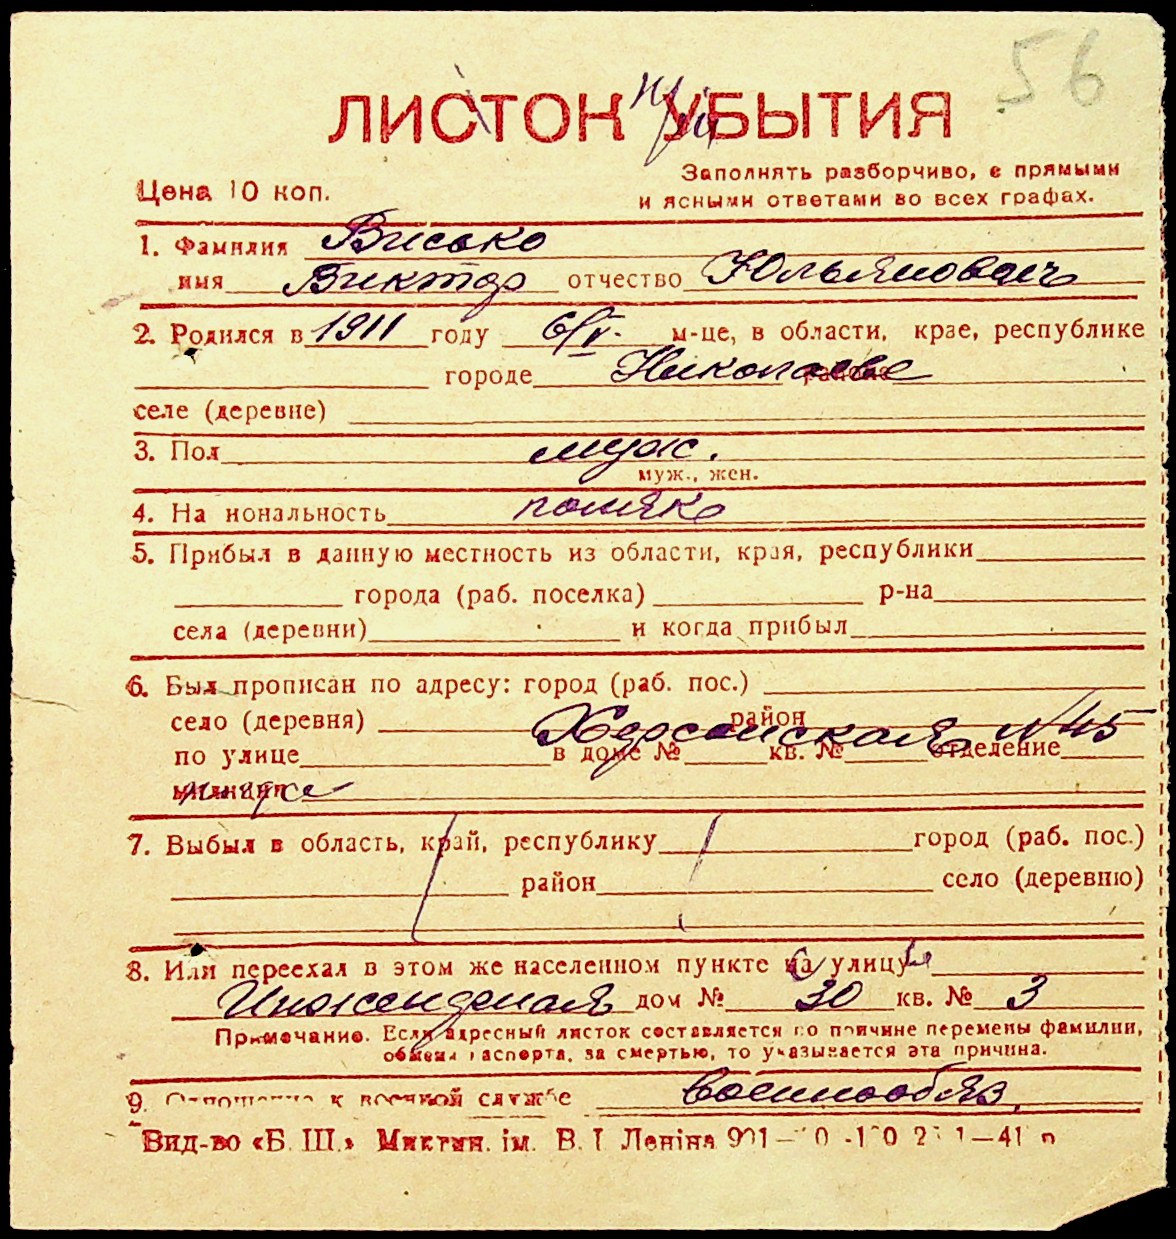 56
ЛИСТОК УБЫТИЯ
Цена 10 коп.
Заполнять разборчиво, с прямыми
и ясными ответами во всех графах.
1. Фамилия Високо
имя Виктор отчество Юльянович
2. Родился в 1911 году 6/V. м-це, в области, крае, республике
городе Николаеве района
селе (деревне)
3. Пол муж.
муж., жен.
4. На иональность поляк
5. Прибыл в данную местность из области, края, республики
города (раб. поселка) р-на
села (деревни) и когда прибыл
6. Был прописан по адресу: город (раб. пос.)
село (деревня) район
Херсонская N 45
по улице в доме № кв. № отделение
милиции
7. Выбыл в область, край, республику город (раб. пос.)
район село (деревню)
8. Или переехал в этом же населенном пункте на улицу
Инженерная дом № 30 кв. № 3
Примечание. Если адресный листок составляется по причине перемены фамилии,
обмена паспорта, за смертью, то указывается эта причина.
9. Отношение к военной службе военнообяз.
Вид-во «Б. Ш.» Микгин. ім. В. І Леніна